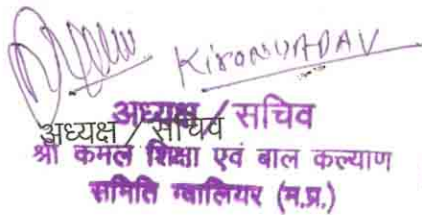 Kiran YADAV
अध्यक्ष / सचिव
अध्यक्ष / सचिव
श्री कमल शिक्षा एवं बाल कल्याण
समिति ग्वालियर (म.प्र.)